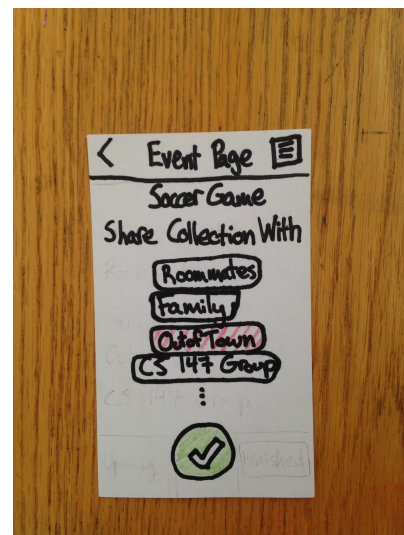 < Event Page
Soccer Game
Share Collection With
Roommates
Family
Out of Town
CS 147 Group
CS 147 Group
Upcoming Finished